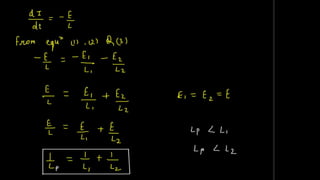 dI/dt = -E/L
From equⁿ (1), (2) & (3)
-E/L = -E₁/L₁ - E₂/L₂
E/L = E₁/L₁ + E₂/L₂
E₁ = E₂ = E
E/L = E/L₁ + E/L₂
Lp < L₁
Lp < L₂
1/Lp = 1/L₁ + 1/L₂